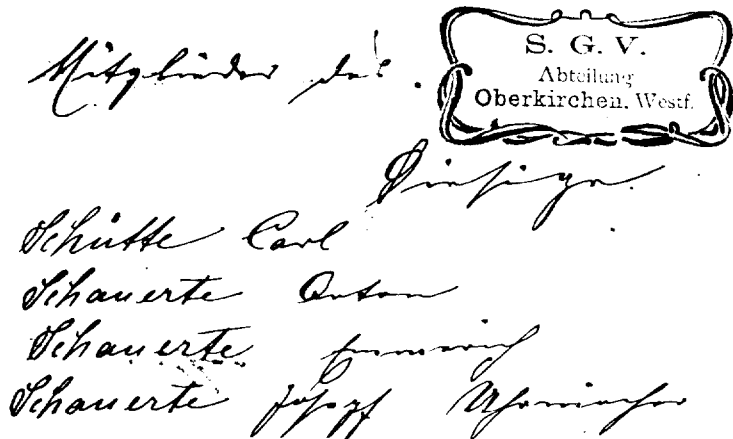 Mitglieder des
S. G. V.
Abteilung
Oberkirchen, Westf.
Hiesige.
Schütte Carl
Schauerte Anton
Schauerte Emmerich
Schauerte Josef Uhrmacher